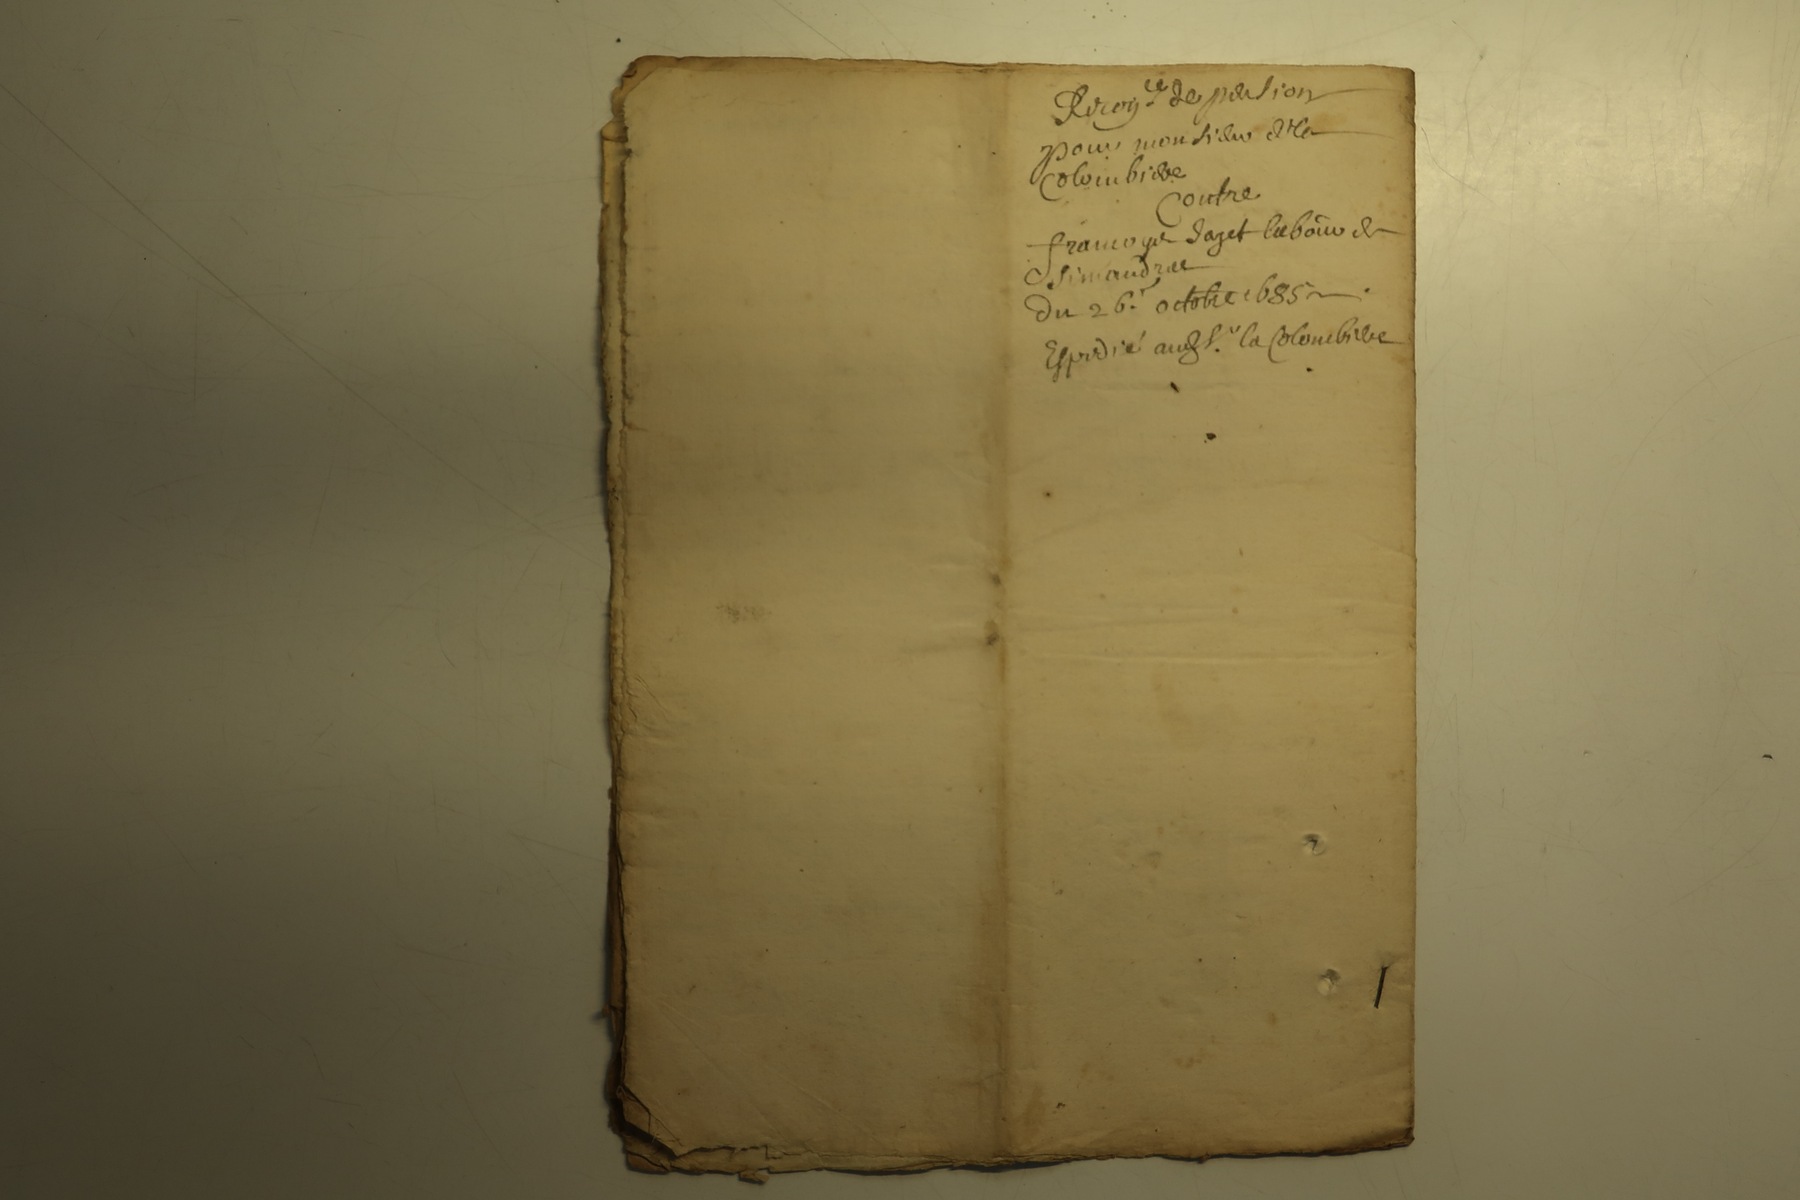 Recog.ce de pension
pour monsieur de la
Colombiere
Contre
francoys labour de
Simandre
du 26.e octobre 1685
Expedié aud s.r la Colombiere